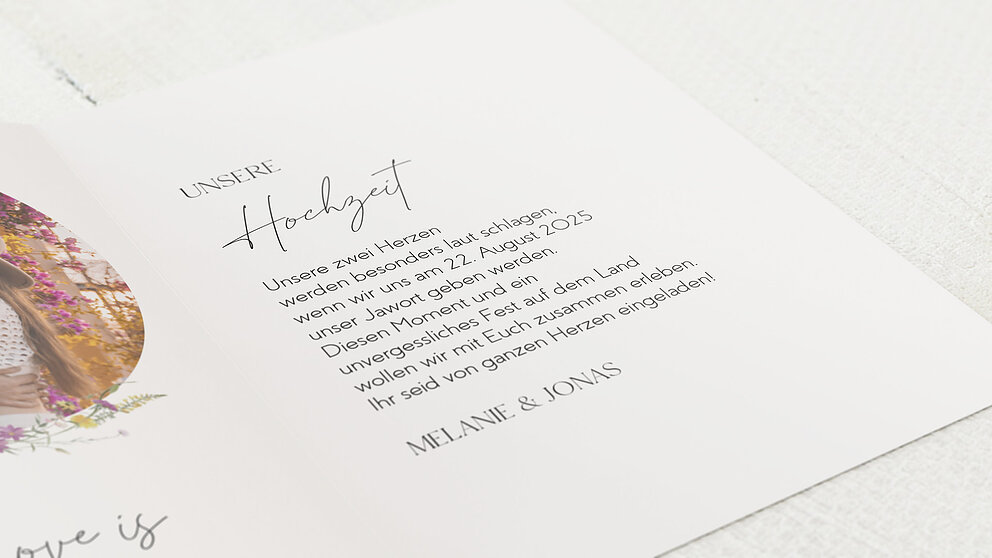 UNSERE
Hochzeit
Unsere zwei Herzen
werden besonders laut schlagen,
wenn wir uns am 22. August 2025
unser Jawort geben werden.
Diesen Moment und ein
unvergessliches Fest auf dem Land
wollen wir mit Euch zusammen erleben.
Ihr seid von ganzen Herzen eingeladen!
MELANIE & JONAS
ove is